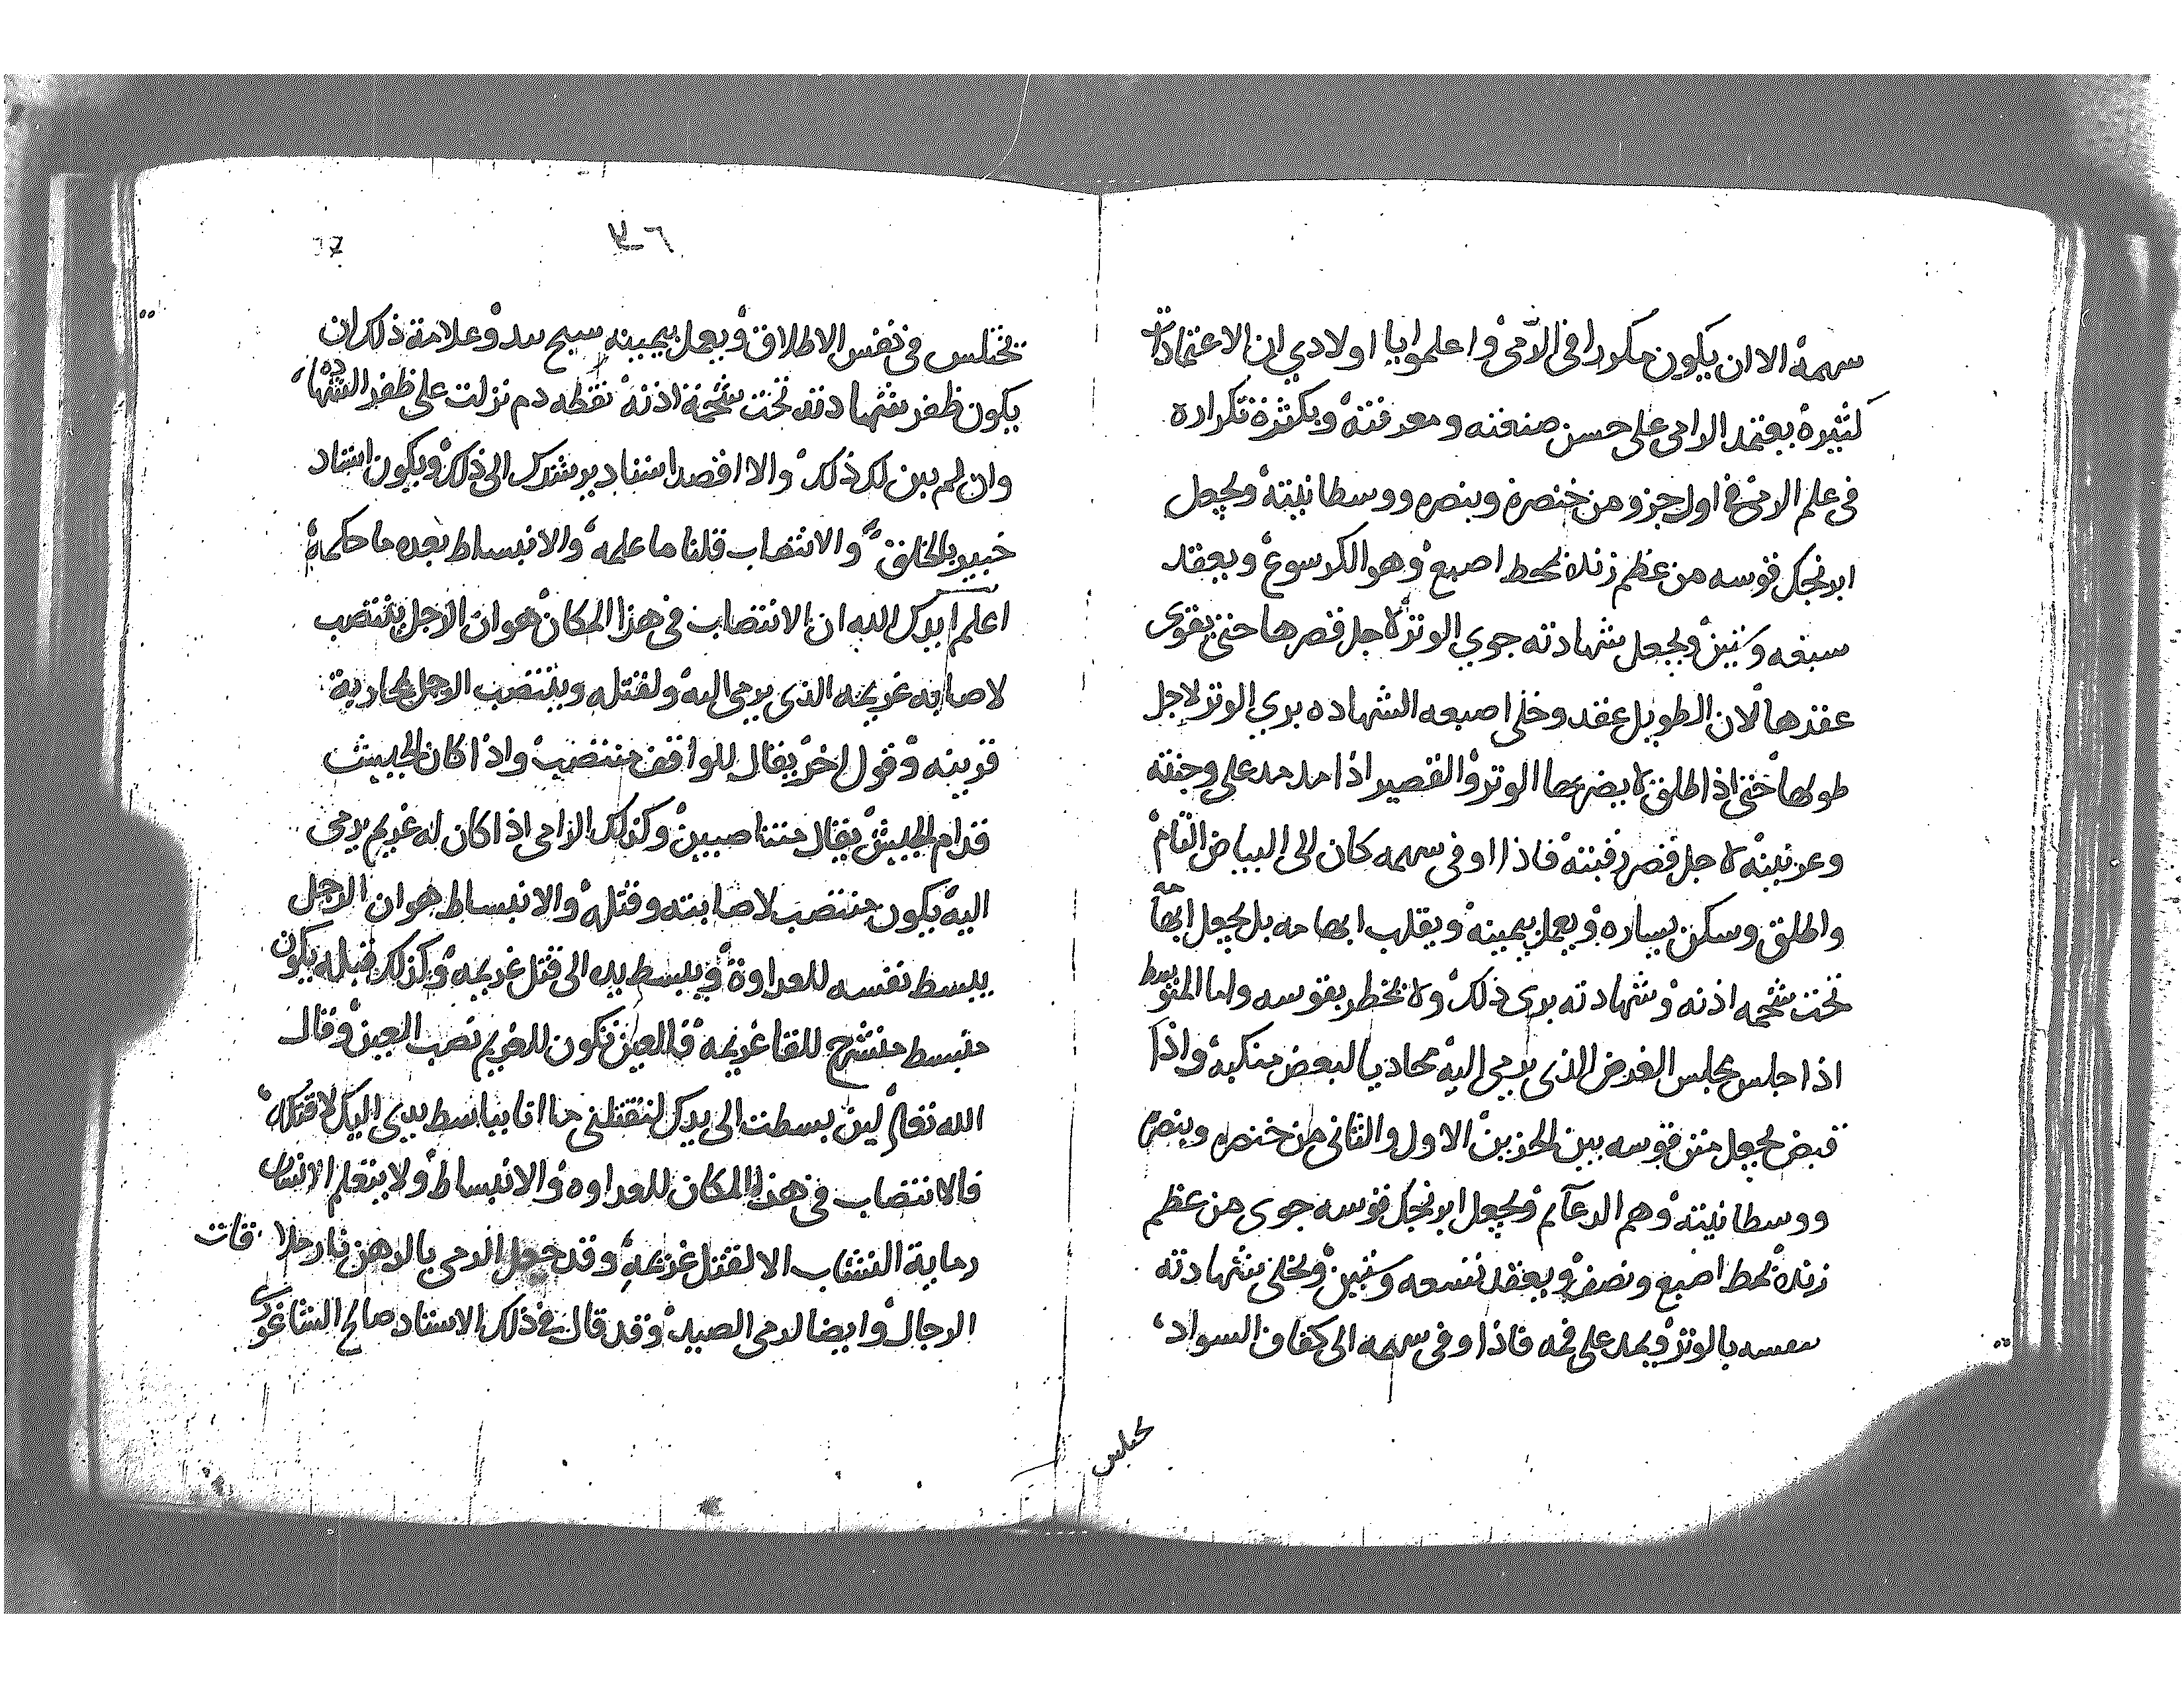 سهمه الا ان يكون مكررا فى الرّمى واعلموا يا اولادي ان الاعتمادات
كثيرة يعتمد الرامى على حسن صنعته ومعرفته وبكثرة تكراره
فى علم الرمى فى اول جزو من خنصره وبنصره ووسطانيته ويجعل
ابرنجك قوسه من عظم زنده بحط اصبع وهو الكرسوع ويعقد
سبعه وستين ويجعل شهادته جوي الوتر لاجل قصرها حتى يقوى
عقدها لان الطويل عقد وخلى اصبعه الشهاده بري الوتر لاجل
طولها حتى اذ اطلق لا يضربها الوتر والقصير اذا مد مد على وجنته
وعرنينه لاجل قصر رقبته فاذا اوفى سهمه كان الى البياض التام
واطلق وسكن يساره ويعمل بيمينه ويقلب ابهامه بل يجعل ابهامه
تحت شحمه اذنه وشهادته برى ذلك ولا يخطر بقوسه واما المتوسط
اذا جلس مجلس الغرض الذى يرمى اليه محاديا لبعض منكبه واذا
قبض يجعل متن قوسه بين الحزين الاول والثانى من خنصره وبنصره
ووسطانيته وهم الدعآيم ويجعل ابرنجك قوسه جوى من عظم
زنده بحط اصبع ونصف ويعقد تسعه وستين ويخلى شهادته
بالوتر ويمد على فمه فاذا اوفى سهمه الى كفاف السواد
تختلس
١٣٦
تختلس فى نفس الاطلاق ويعمل بيمينه وعلامة ذلك ان
يكون ظفر شهادته تحت شحمة اذنه نقطه دم نزلت على ظفر الشهاده
وان لم يبن لك ذلك والا اقصد استاد يرشدك الى ذلك ويكون استاد
خبير بالخلق والانتصاب قلنا ما علمه والانبساط بعده ما حكمه
اعلم ايدك الله ان الانتصاب فى هذا المكان هو ان الرجل ينتصب
لاصابه غريمه الذى يرمى اليه ولقتله وينتصب الرجل لمحاربة
قرينه وقول اخر يقال للواقف منتصب واذا كان الجيش
قدام الجيش يقال متناصبين وكذلك الرامى اذا كان له غريم يرمى
اليه يكون منتصب لاصابته وقتله والانبساط هو ان الرجل
يبسط نفسه للعداوة ويبسط يده الى قتل غريمه وكذلك قبله يكون
منبسط منشرح للقا غريمه فالعين تكون للغريم نصب العين وقال
الله تعالى لين بسطت الى يدك لتقتلنى ما انا بباسط يدي اليك لاقتلك
فالانتصاب فى هذا المكان للعداوه والانبساط ولا يتعلم الانسان
رماية النشاب الا لقتل غريمه وقد جعل الرمى بالدهن
الرجال وايضا لرمى الصيد وقد قال فى ذلك الاستاد صالح الشاغورى